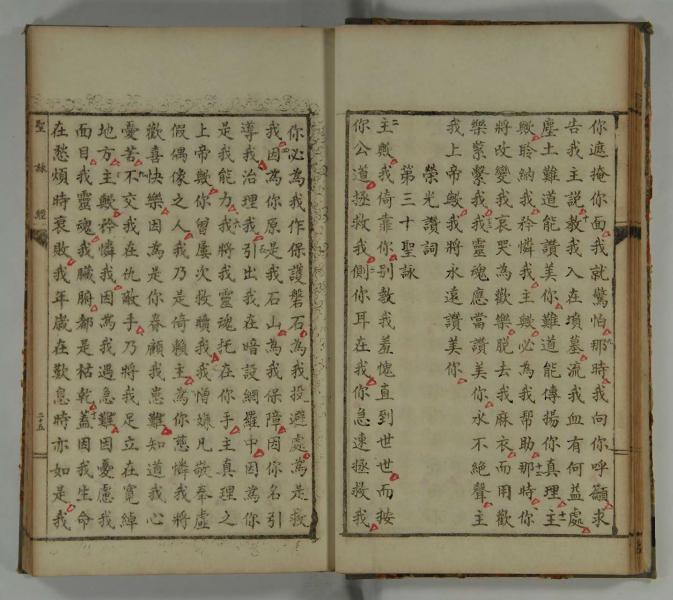 你遮掩你面我就驚怕那時我向你呼籲求
告我主說教我入在墳墓流我血有何益處
塵土難道能讚美你難道能傳揚你真理主
歟聆納我矜憐我主歟必為我幫助那時你
將改變我哀哭為歡樂脫去我麻衣而用歡
樂縈繫我我靈魂應當讚美你永不絕聲主
我上帝歟我將永遠讚美你
榮光讚詞
第三十聖詠
主歟我倚靠你別教我羞愧直到世世而按
你公道拯救我側你耳在我你急速拯救我
你必為我作保護磐石為我投避處為是救
我因為你原是我石山為我保障因你名引
導我治理我引出我在暗設網羅中因為你
是我能力我將我靈魂托在你手主真理之
上帝歟你曾屢次救贖我我憎嫌凡敬奉虛
假偶像之人我乃是倚賴主為你慈憐我將
歡喜快樂因為是你眷顧我患難知道我心
憂苦不交我在仇敵手乃將我足立在寬綽
地方主歟矜憐我因為我遇急難因憂慮我
面目我靈魂我臟腑都是枯乾蓋因我生命
在愁煩時衰敗我年歲在歎息時亦如是我
聖詠經
二十五